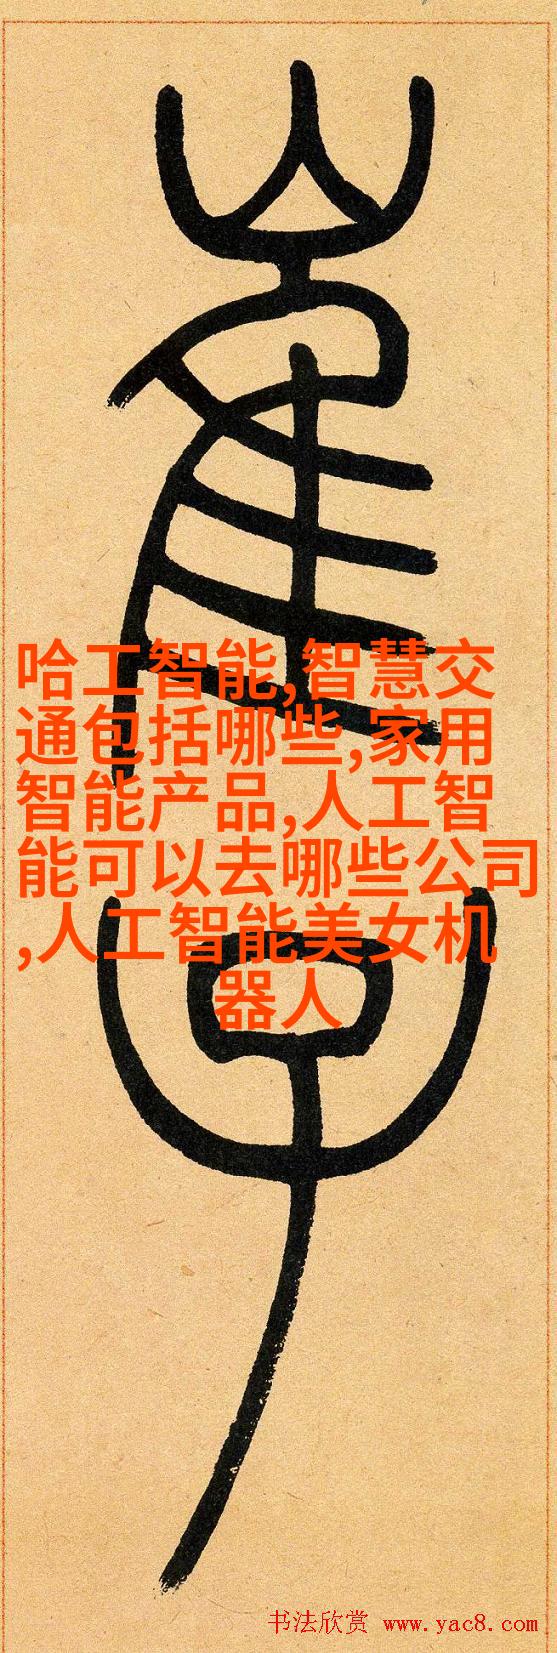 崔
子
哈工智能,智慧交
通包括哪些,家用
智能产品,人工智
能可以去哪些公司
,人工智能美女机
器人
书法欣赏 www.yac8.com